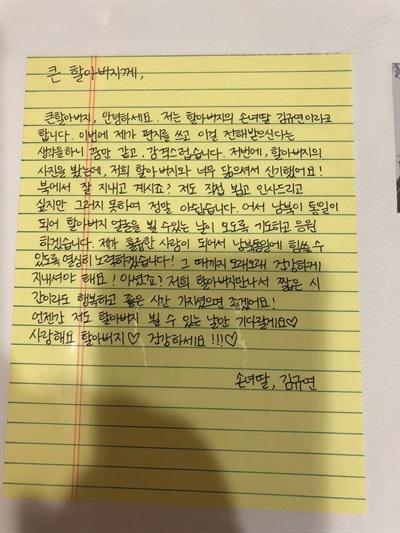 큰 할아버지께,
큰할아버지, 안녕하세요. 저는 할아버지의 손녀딸 김규연이라고
합니다. 이번에 제가 편지를 쓰고 이걸 전해받으신다는
생각을하니 꿈만 같고, 감격스럽습니다. 저번에, 할아버지의
사진을 봤는데, 저희 할아버지와 너무 닮으셔서 신기했어요!
북에서 잘 지내고 계시죠? 저도 직접 뵙고 인사드리고
싶지만 그러지 못하여 정말 아쉽습니다. 어서 남북이 통일이
되어 할아버지 얼굴을 뵐 수있는 날이 오도록 기도하고 응원
하겠습니다. 제가 훌륭한 사람이 되어서 남북통일에 힘쓸 수
있도록 열심히 노력하겠습니다! 그 때까지 오래오래 건강하게
지내셔야 해요! 아셨죠? 저희 할아버지만나서 짧은 시
간이라도 행복하고 좋은 시간 가지셨으면 좋겠어요!
언젠간 저도 할아버지 뵐 수 있는 날만 기다릴게요♡
사랑해요 할아버지♡ 건강하세요!!!♡
손녀딸, 김규연